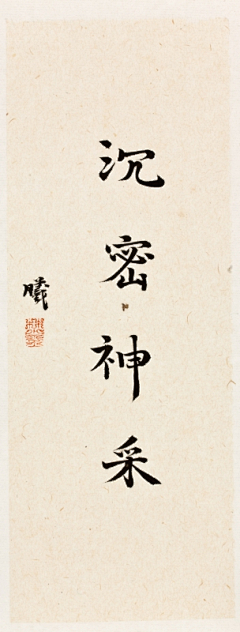 沉密神采
曦